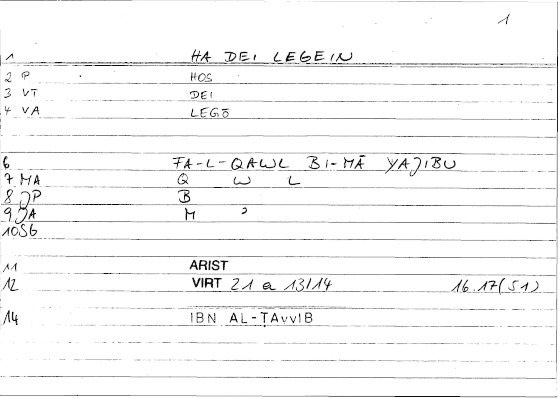 1
1 HA DEI LEGEIN
2 P HOS
3 VT DEI
4 VA LEGŌ
6 FA-L-QAWL BI-MĀ YAJIBU
7 MA Q W L
8 JP B
9 JA M ʾ
10SG
11 ARIST
12 VIRT 21 a 13/14 16.17(51)
14 IBN AL-ṬAvvIB